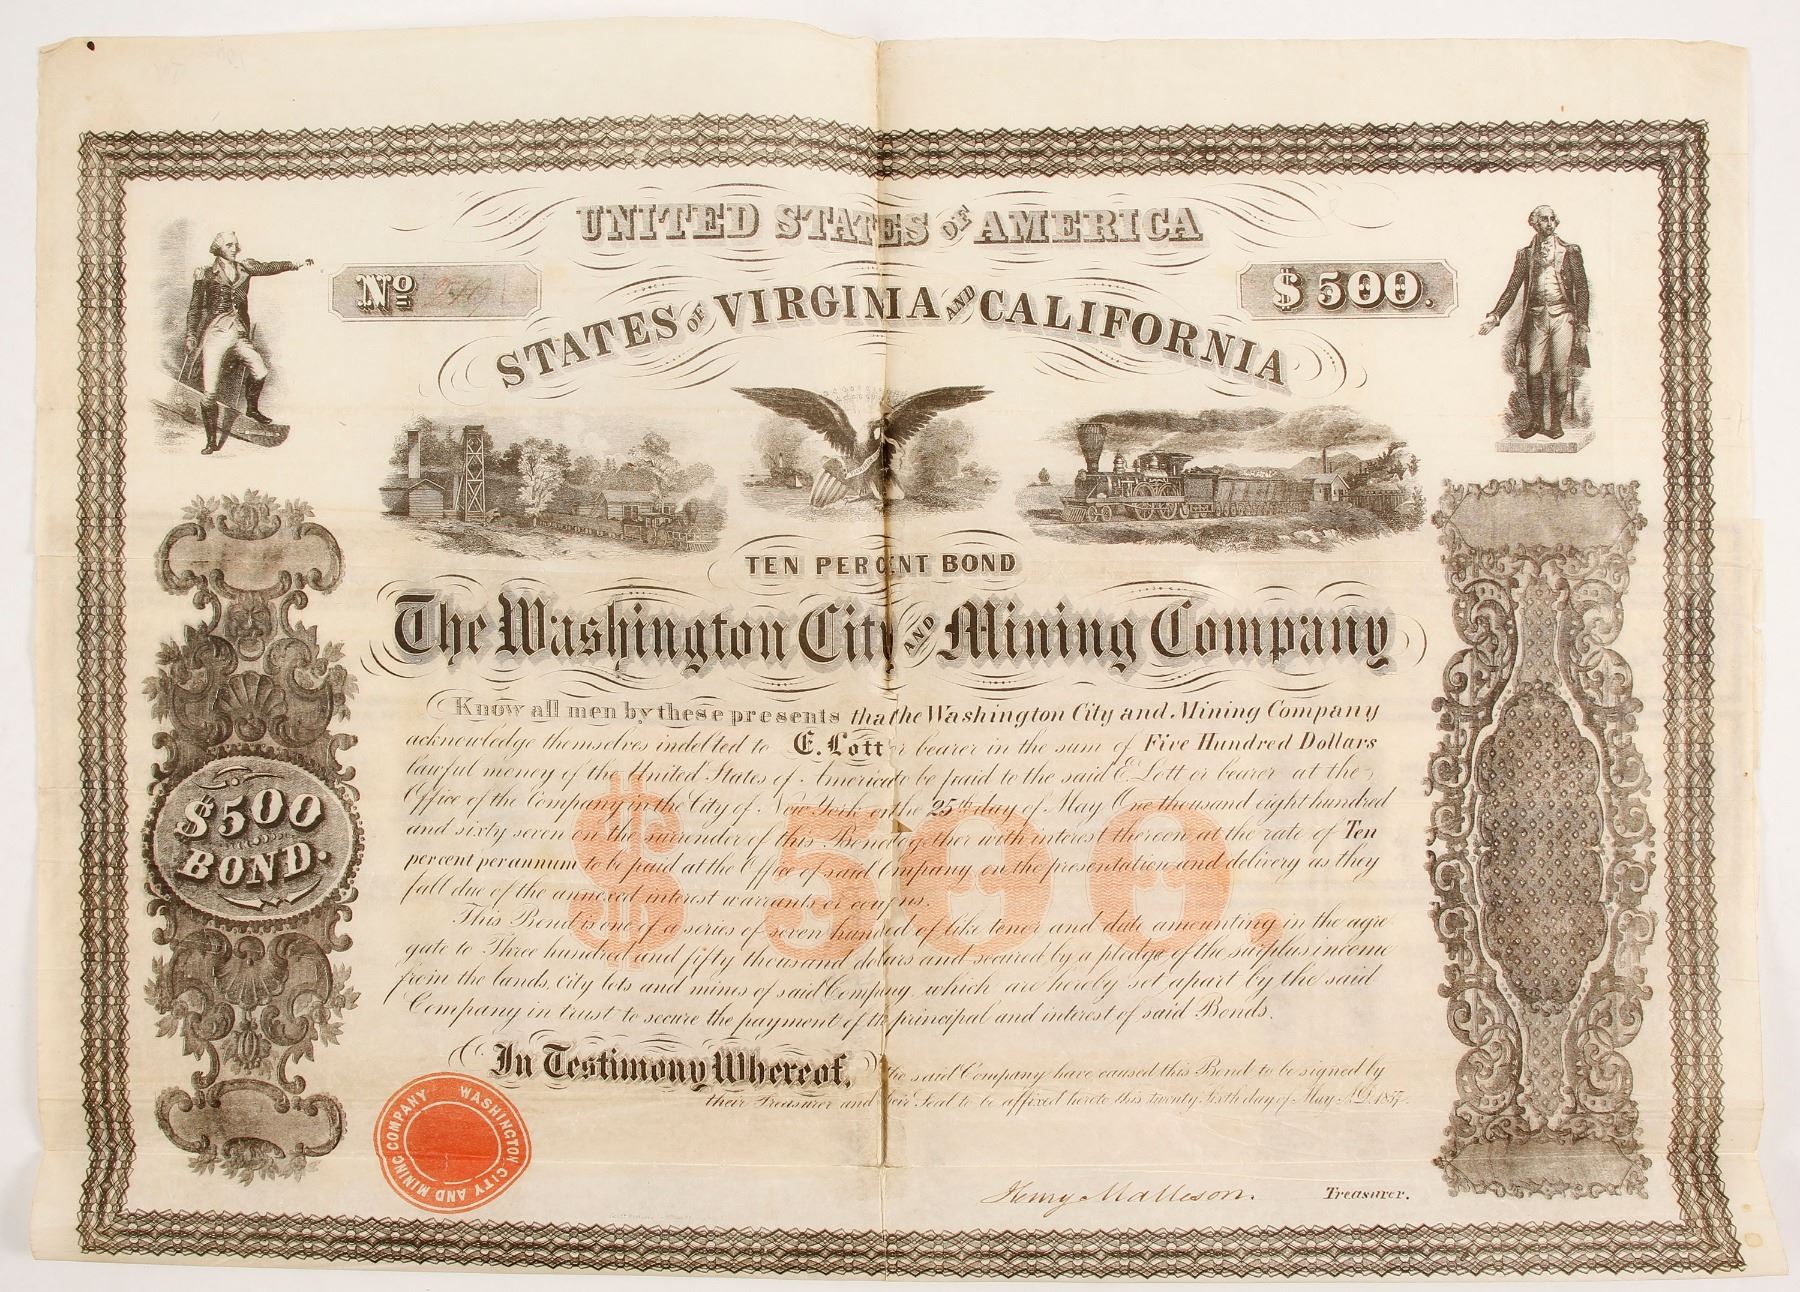 UNITED STATES OF AMERICA
No
$500.
STATES OF VIRGINIA AND CALIFORNIA
TEN PERCENT BOND
The Washington City AND Mining Company
Know all men by these presents that the Washington City and Mining Company
acknowledge themselves indebted to E. Lott or bearer in the sum of Five Hundred Dollars
lawful money of the United States of America to be paid to the said E. Lott or bearer at the
Office of the Company in the City of New York on the 25th day of May One thousand eight hundred
and sixty seven on the surrender of this Bond together with interest thereon at the rate of Ten
per cent per annum to be paid at the Office of said Company on the presentation and delivery as they
fall due of the annexed interest warrants or coupons.
This Bond is one of a series of seven hundred of like tenor and date amounting in the agre-
gate to Three hundred and fifty thousand dollars and secured by a pledge of the surplus income
from the lands, city lots and mines of said Company, which are hereby set apart by the said
Company in trust to secure the payment of the principal and interest of said Bonds.
$500.
$500
BOND.
In Testimony Whereof, the said Company have caused this Bond to be signed by
their Treasurer and their Seal to be affixed hereto this twenty fifth day of May A.D. 1857.
WASHINGTON CITY AND MINING COMPANY
Henry Matteson. Treasurer.